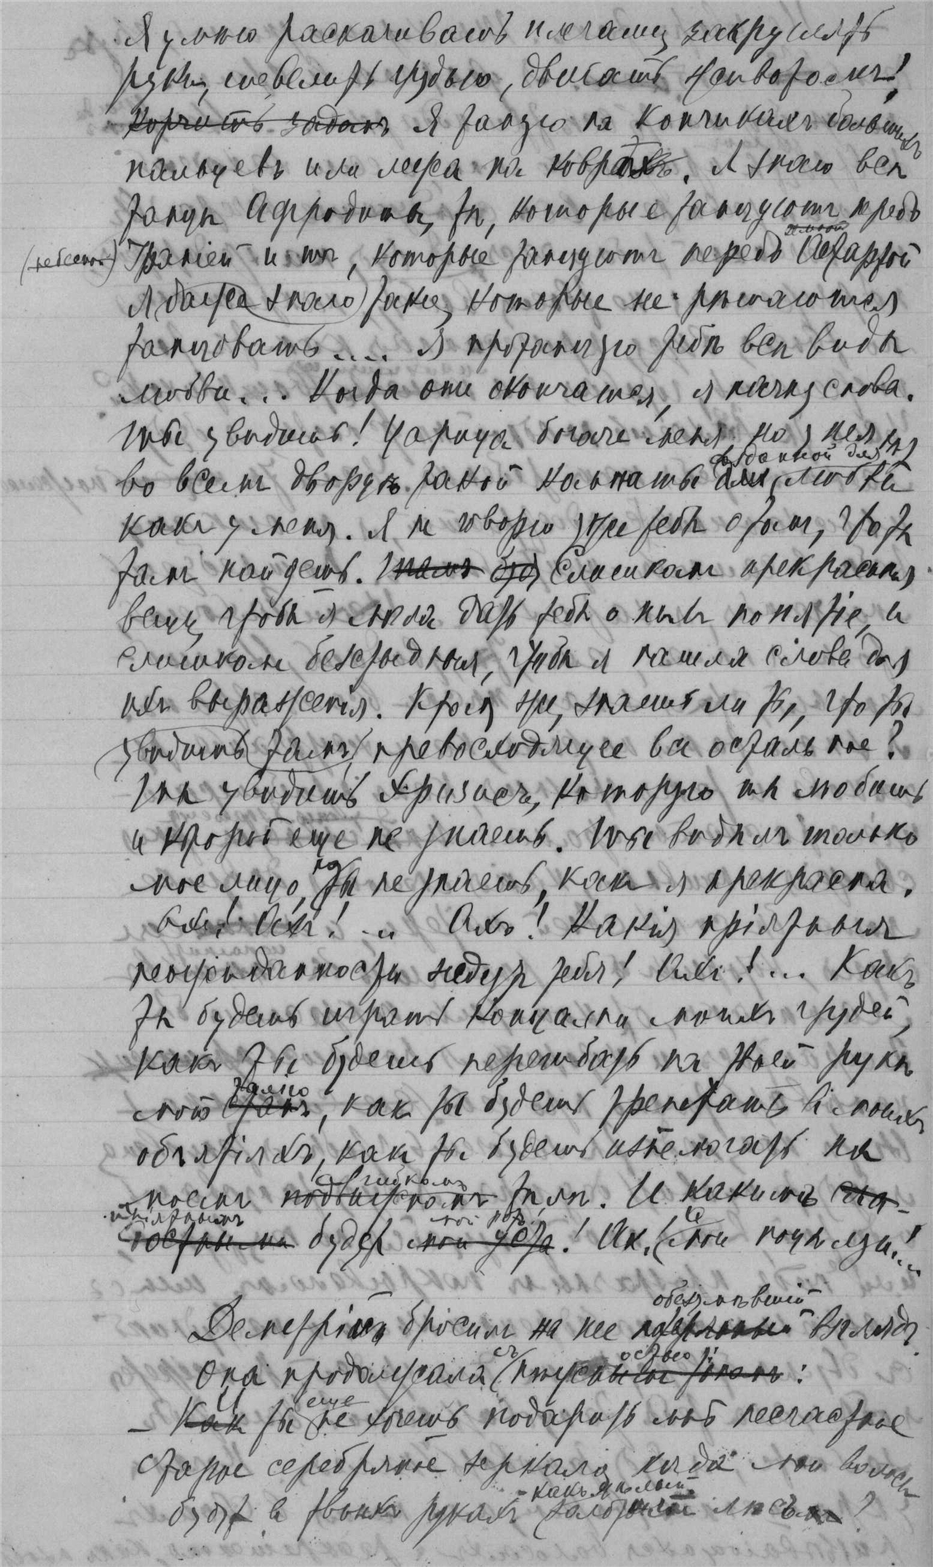 Я умѣю раскачивать плечами, закруглять
руки, шевелить грудью, двигать животомъ!
Корчить задомъ Я танцую на кончикахъ большихъ
пальцевъ или лежа на коврахъ. Я знаю всѣ
танцы Афродиты, тѣ, которые танцуютъ предъ
(небесной) Ураніей и тѣ, которые танцуютъ передъ Астартой
Я даже знаю такіе, которые не рѣшаются
танцовать.... Я протанцую тебѣ всѣ виды
любви... Когда они окончатся, я начну снова.
Ты увидишь! Царица богаче меня но у нея нѣтъ
во всемъ дворцѣ такой комнаты созданной для любви
какъ у меня. Я не говорю уже тебѣ о томъ, что ты
тамъ найдешь. Тамъ Слишкомъ прекрасныя
вещи чтобы я могла дать тебѣ о нихъ понятіе, и
слишкомъ безстыдныя, чтобы я нашла слова для
ихъ выраженія. Кромѣ же, знаешь ли ты, что ты
увидишь тамъ превосходящее все остальное?
Ты увидишь Хризисъ, которую ты любишь
и которой еще не знаешь. Ты видѣлъ только
мое лицо, но ты не знаешь, какъ я прекрасна.
Ахъ! Ахъ! .. Ахъ! Какія пріятныя
неожиданности ждутъ тебя! Ахъ!... Какъ
ты будешь играть концами моихъ грудей,
какъ ты будешь перегибать на твоей рукѣ
мою талію, какъ ты будешь трепетать въ моихъ
объятіяхъ, какъ ты будешь изнемогать на
моемъ гибкомъ тѣлѣ. И какимъ
пріятнымъ будетъ мой ротъ! Ахъ, мои поцѣлуи!..
Деметрій бросилъ на нее обезумѣвшій взглядъ.
Она продолжала съ
– Какъ ты еще не хочешь подарить мнѣ несчастное
старое серебряное зеркало, когда мои волосы
будутъ въ твоихъ рукахъ какъ